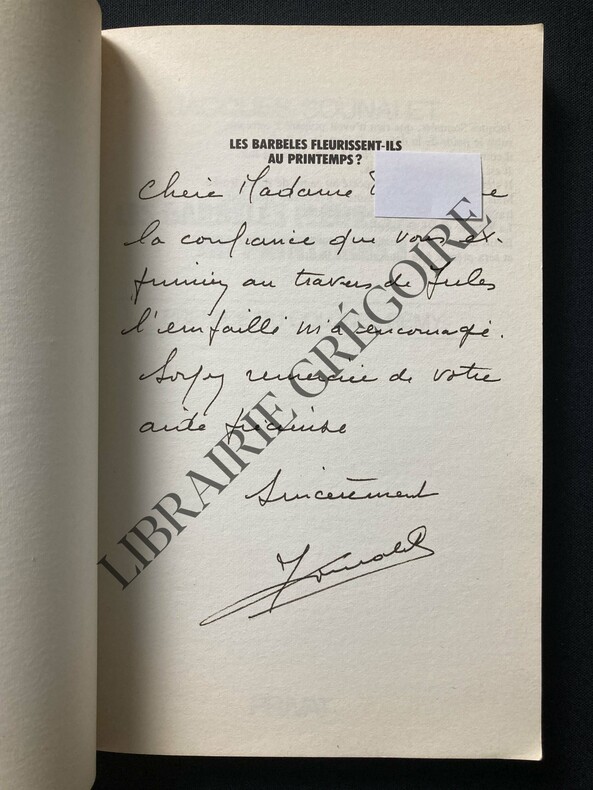 LES BARBELES FLEURISSENT-ILS
AU PRINTEMPS ?
Chère Madame
la confiance que vous ex-
primiez au travers de Jules
l'empaillé m'a encouragé.
Soyez remerciée de votre
aide précieuse
Sincèrement
LIBRAIRIE GRÉGOIRE